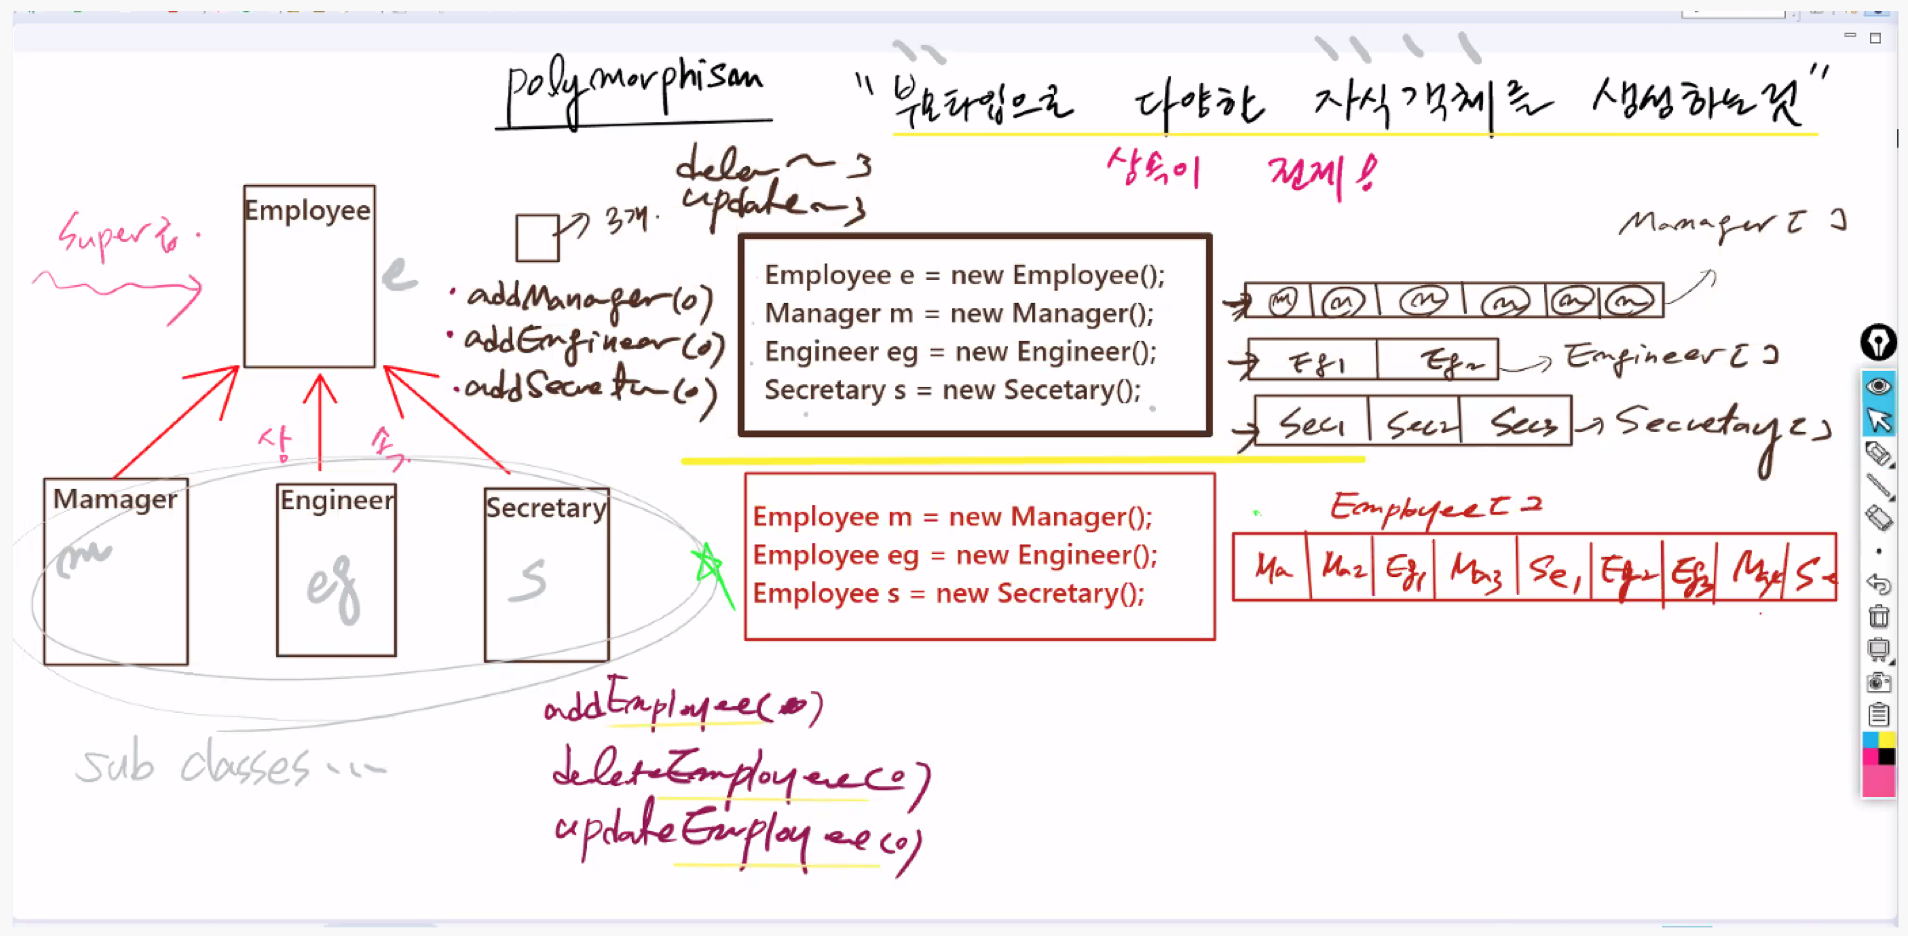 polymorphisam "부모타입으로 다양한 자식객체를 생성하는것"
상속이 전제!
dele ~ 3
update ~ 3
3개.
Employee
Super
e
addManager(o)
addEngineer(o)
addSecretar(o)
Employee e = new Employee();
Manager m = new Manager();
Engineer eg = new Engineer();
Secretary s = new Secetary();
Manager[ ]
m m m m m m
Eg1 Eg2 Engineer[ ]
Sec1 Sec2 Sec3 Secretary[ ]
상 속
Mamager
m
Engineer
eg
Secretary
s
sub classes...
Employee m = new Manager();
Employee eg = new Engineer();
Employee s = new Secretary();
Employee[ ]
Ma Ma2 Eg1 Ma3 Se1 Eg2 Eg3 Ma4 Se
addEmployee(o)
deleteEmployee(o)
updateEmployee(o)